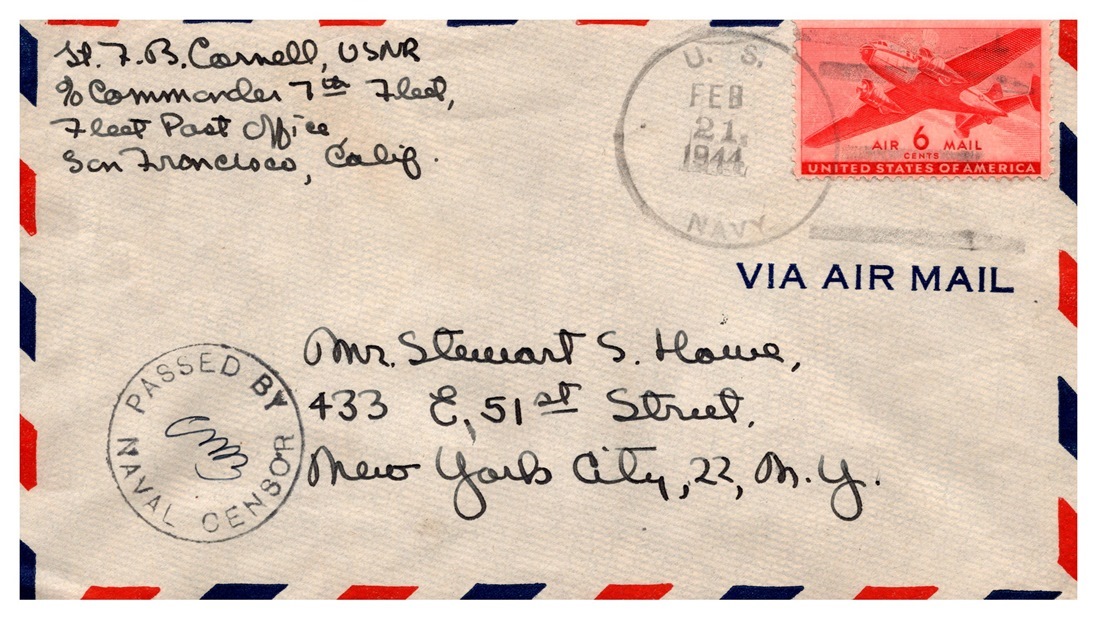 Lt. F. B. Cornell, USNR
c/o Commander 7th Fleet,
Fleet Post Office
San Francisco, Calif.
U. S.
FEB
21
1944
NAVY
AIR 6 MAIL
CENTS
UNITED STATES OF AMERICA
VIA AIR MAIL
Mr. Stewart S. Howe,
433 E. 51st Street,
New York City, 22, N.Y.
PASSED BY
NAVAL CENSOR